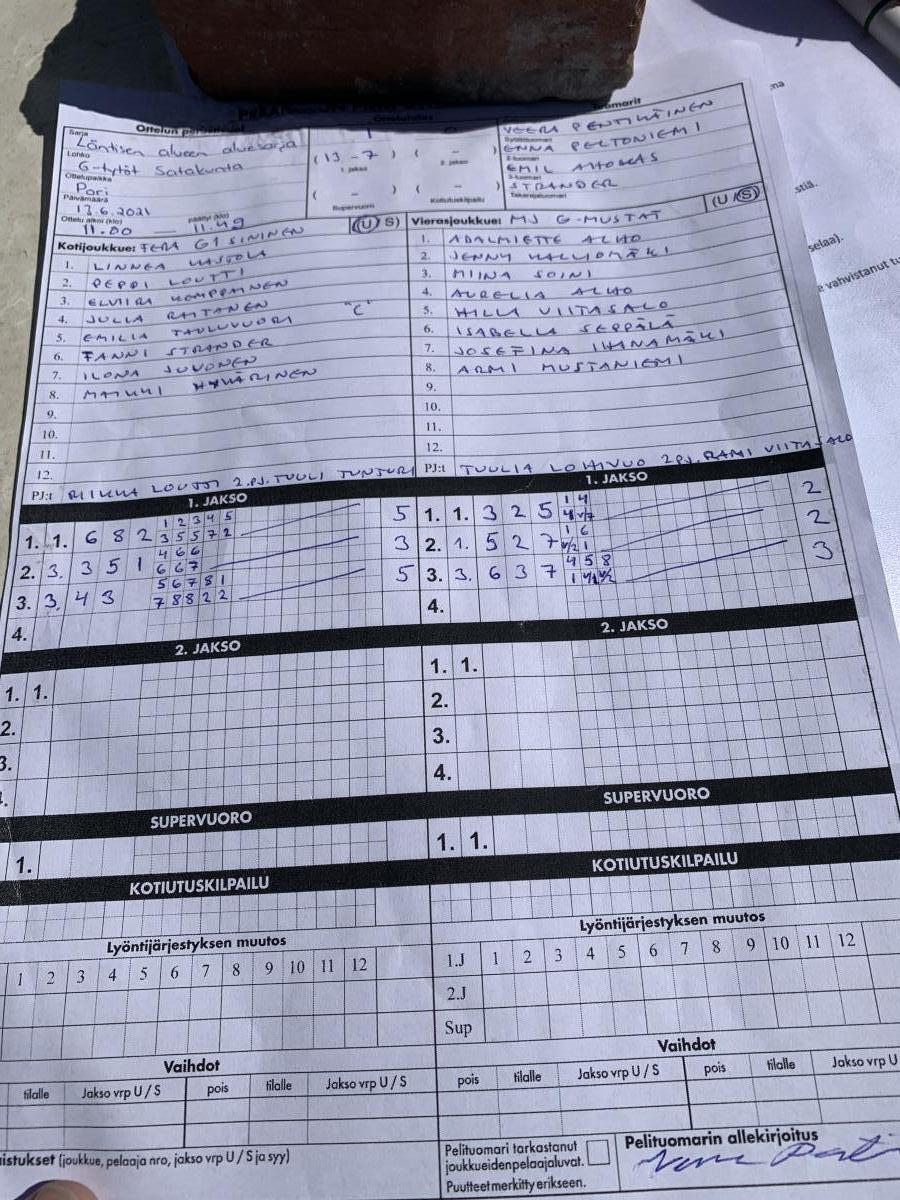 Ottelun perustiedot
Sarja
Läntisen alueen aluesarja
Lohko
G-tytöt Satakunta
Ottelupaikka
Pori
Päivämäärä
13.6.2021
Ottelu alkoi (klo) päättyi (klo)
11.00 — 11.49
Ottelutulos
1 0
(13 - 7) ( - )
1. jakso 2. jakso
( - ) ( - )
Supervuoro Kotiutuskilpailu
Tuomarit
VEERA PENTIKÄINEN
Syöttötuomari
ENNA PELTONIEMI
2-tuomari
EMIL
3-tuomari
STRANDER
Takarajatuomari
Kotijoukkue: FERA G1 SININEN (U S)
1. LINNEA
2. PEPPI LOUTTI
3. ELVIIRA KEMPPAINEN
4. JULLA RAITANEN
5. EMILIA TAULUVUORI "C"
6. FANNI STRANDER
7. ILONA JUVONEN
8. MATKKI HYVÄRINEN
9.
10.
11.
12.
PJ:t RIIKKA LOUTTI 2.PJ. TUULI TUNTURI
Vierasjoukkue: MJ G-MUSTAT (U S)
1. ADALMIETTE ALHO
2. JENNY KALLIOMÄKI
3. MIINA SOINI
4. AURELIA ALHO
5. HILLA VIITASALO
6. ISABELLA SEPPÄLÄ
7. JOSEFINA IHANAMÄKI
8. ARMI MUSTANIEMI
9.
10.
11.
12.
PJ:t TUULIA LOHIVUO 2PJ. RAMI VIITASALO
1. JAKSO
1 2 3 4 5
1. 1. 6 8 2 3 5 5 7 2 5
4 6 6
2. 3. 3 5 1 6 6 7 3
5 6 7 8 1
3. 3. 4 3 7 8 8 2 2 5
4.
1. JAKSO
1 4
1. 1. 3 2 5 4 V7 2
1 6
2. 1. 5 2 7 V21 2
4 5 8
3. 3. 6 3 7 3
4.
2. JAKSO
1. 1.
2.
3.
2. JAKSO
1. 1.
2.
3.
4.
SUPERVUORO
1.
SUPERVUORO
1. 1.
KOTIUTUSKILPAILU
KOTIUTUSKILPAILU
Lyöntijärjestyksen muutos
1 2 3 4 5 6 7 8 9 10 11 12
Lyöntijärjestyksen muutos
1.J 1 2 3 4 5 6 7 8 9 10 11 12
2.J
Sup
Vaihdot
tilalle Jakso vrp U / S pois tilalle Jakso vrp U / S
Vaihdot
pois tilalle Jakso vrp U / S pois tilalle Jakso vrp U
(joukkue, pelaaja nro, jakso vrp U / S ja syy)
Pelituomari tarkastanut
joukkueidenpelaajaluvat.
Puutteet merkitty erikseen.
Pelituomarin allekirjoitus
stiä.
selaa).
e vahvistanut tu